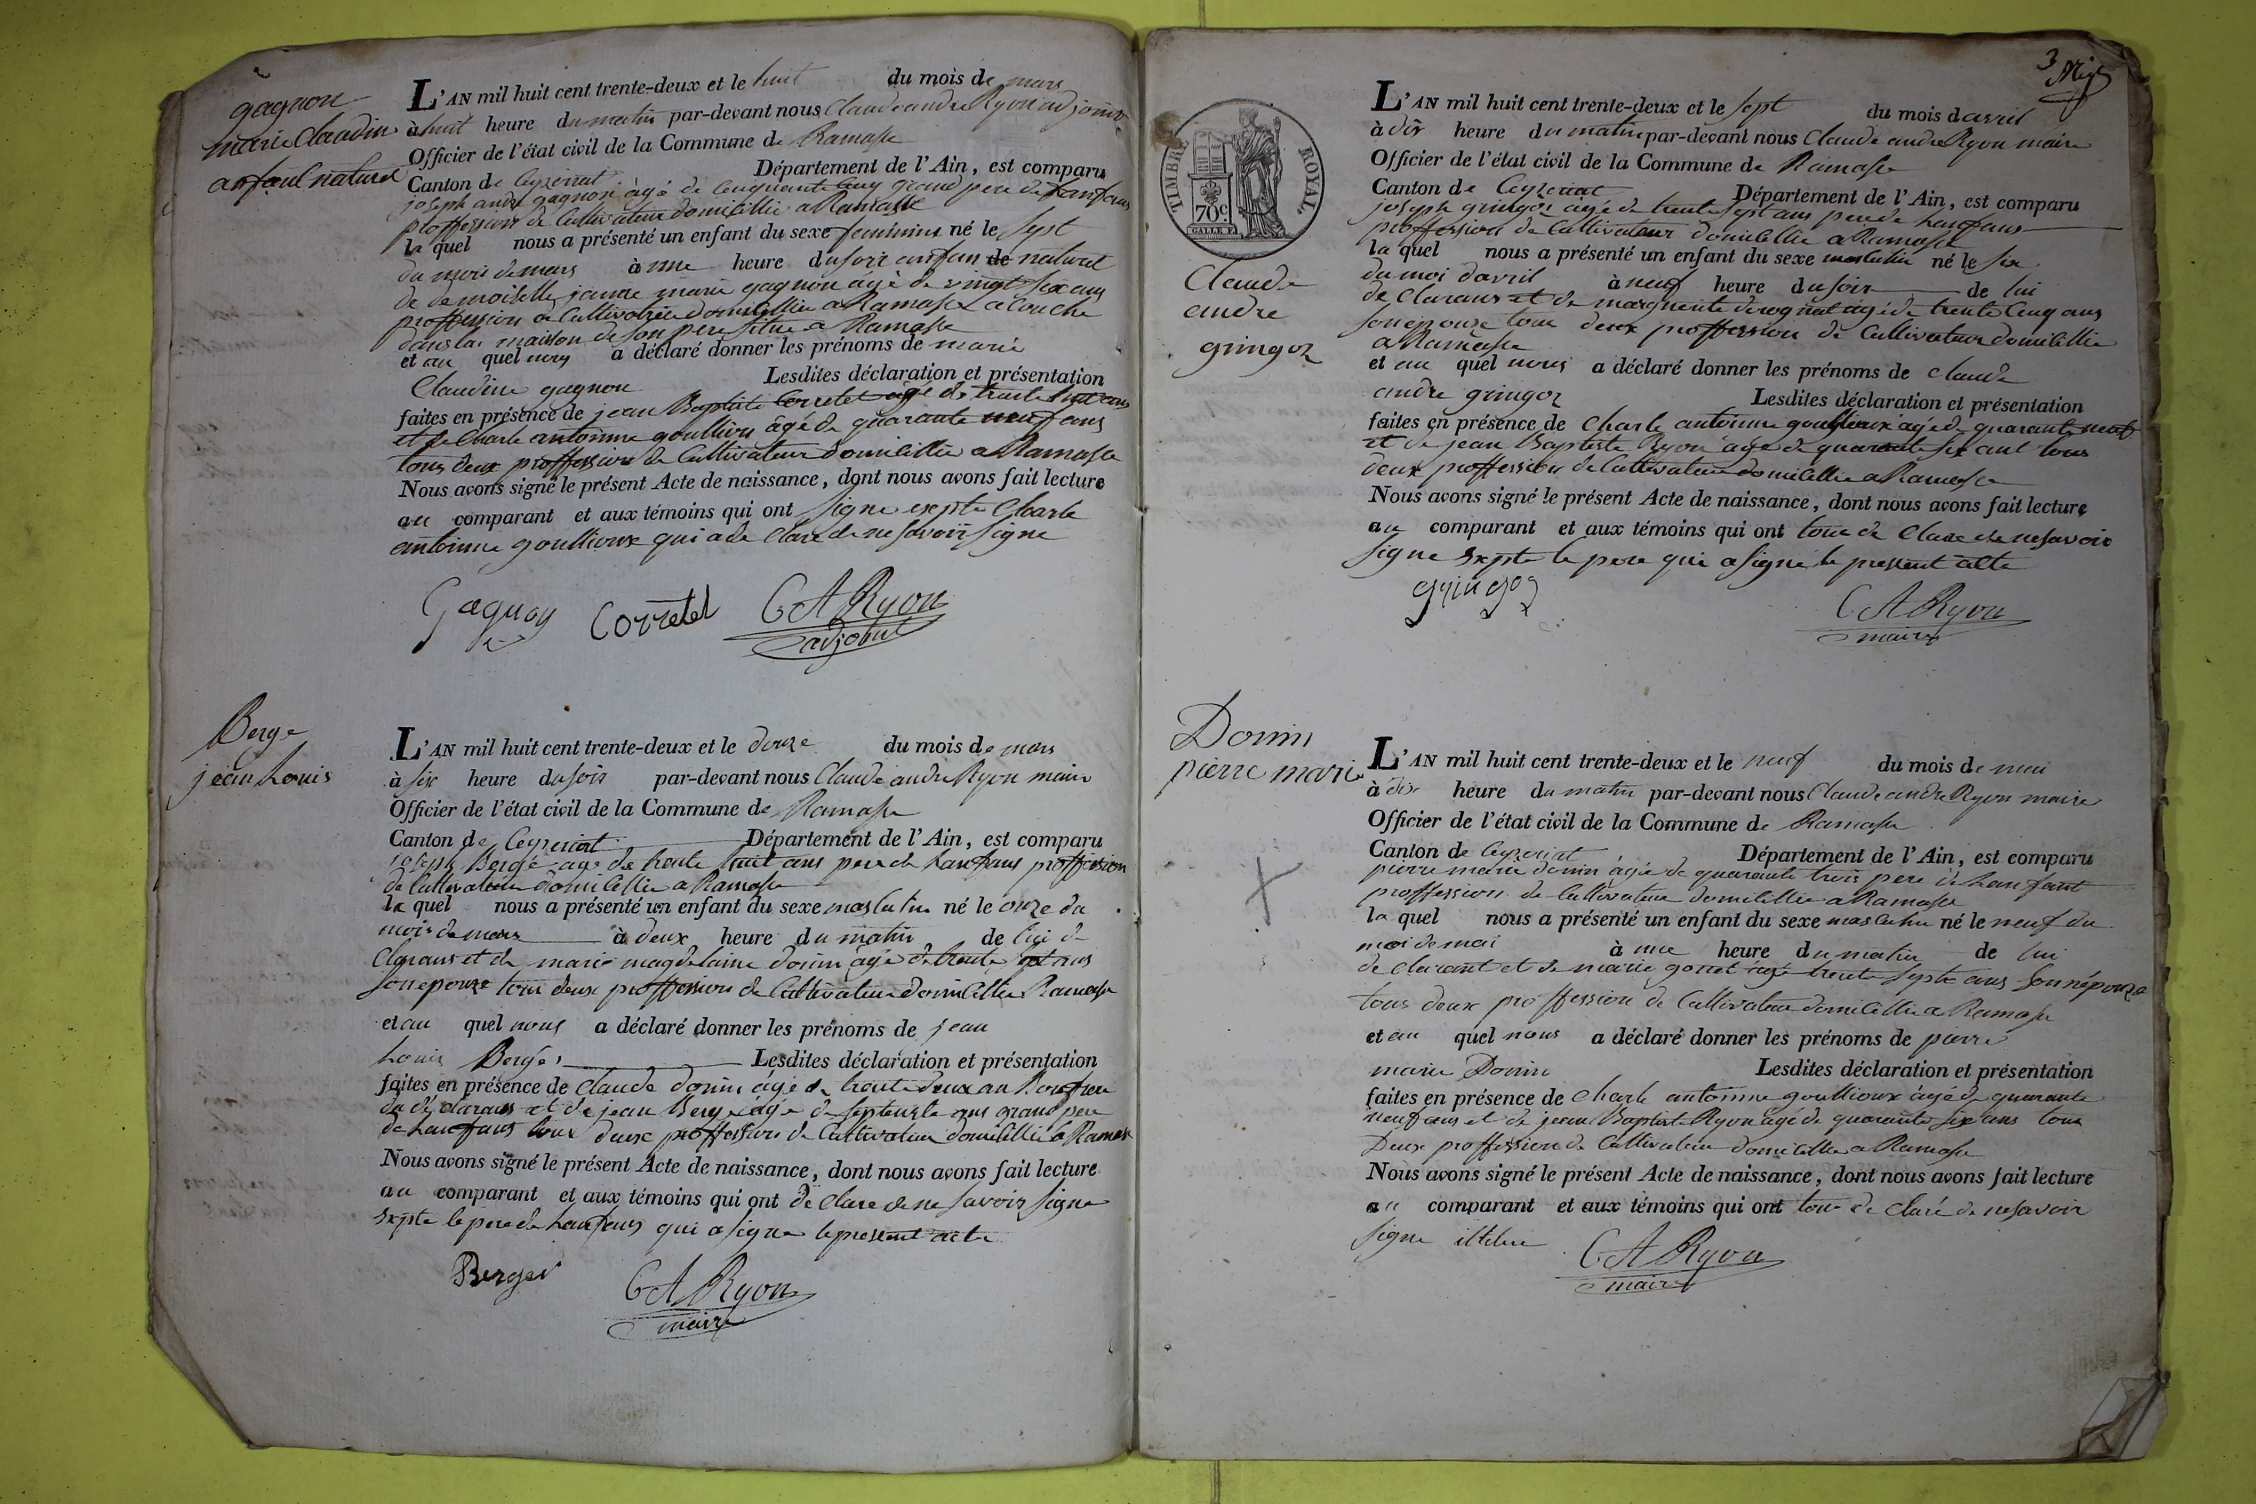 gagnon
marie Claudine
anfant naturel
L'AN mil huit cent trente-deux et le huit du mois de mars
à huit heure du matin par-devant nous Claude andre Ryon adjoint
Officier de l'état civil de la Commune de Ramasse
Canton de Ceyzeriat Département de l'Ain, est comparu
joseph andre gagnon âgé de cinquante cinq grand pere de lanfans
proffession de Cultivateur domicillie a Ramasse
le quel nous a présenté un enfant du sexe feminins né le sept
du mois de mars à une heure du soir anfan de naturel
de demoiselle jeanne marie gagnon agé de vingt six ans
proffession de Cultivatrice domicillie a Ramasse acouché
dans la maison de son pere situe a Ramasse
et au quel nous a déclaré donner les prénoms de marie
Claudine gagnon Lesdites déclaration et présentation
faites en présence de jean Baptiste Corretel agé de trante huit ans
et de Charle antoinne goullioux âgé de quarante neuf ans
tous deux proffession de Cultivateur domicillie a Ramasse
Nous avons signé le présent Acte de naissance, dont nous avons fait lecture
au comparant et aux témoins qui ont signe exepte Charle
antoinne goullioux qui a de clare de ne savoir signe
Gagnon Corretel C A Ryon
adjoint
Berge
jean Louis
L'AN mil huit cent trente-deux et le douze du mois de mars
à six heure du soir par-devant nous Claude andre Ryon maire
Officier de l'état civil de la Commune de Ramasse
Canton de Ceyzeriat Département de l'Ain, est comparu
joseph Berge age de trente huit ans pere de lanfans proffession
de Cultivateur domicillie a Ramasse
le quel nous a présenté un enfant du sexe masculin né le onze du
mois de mars à deux heure du matin de lui de
clarans et de marie magdelaine donin âgé de trente sept ans
son epouse tous deux proffession de Cultivateur domicillie Ramasse
et au quel nous a déclaré donner les prénoms de jean
Louis Berger Lesdites déclaration et présentation
faites en présence de Claude donin âgé de trente deux an Beaufrere
du dé clarans et de jean Berge âgé de septente ans grand pere
de lanfans tous deux proffession de Cultivateur domicillié a Ramasse
Nous avons signé le présent Acte de naissance, dont nous avons fait lecture
au comparant et aux témoins qui ont de clare de ne savoir signe
exepte le pere de lanfans qui a signe le present acte
Berger C A Ryon
maire
3
TIMBRE ROYAL
70 c.
Claude
andre
gringoz
L'AN mil huit cent trente-deux et le sept du mois davril
à dix heure du matin par-devant nous Claude andre Ryon maire
Officier de l'état civil de la Commune de Ramasse
Canton de Ceyzeriat Département de l'Ain, est comparu
joseph gringoz âgé de trente sept ans pere de lanfans
proffession de Cultivateur domicillie a Ramasse
le quel nous a présenté un enfant du sexe masculin né le six
du moi davril à neuf heure du soir de lui
de clarans et de marguerite derognat agé de trente cinq ans
son epouze tous deux proffession de Cultivateur domicillie
a Ramasse
et au quel nous a déclaré donner les prénoms de claude
andre gringoz Lesdites déclaration et présentation
faites en présence de Charle antoinne goullioux age de quarante neuf
et de jean Baptiste Ryon âgé de quarante six ans tous
deux proffession de Cultivateur domicillie a Ramasse
Nous avons signé le présent Acte de naissance, dont nous avons fait lecture
au comparant et aux témoins qui ont tous de clare de ne savoir
signe exepte le pere qui a signé le present acte
gringoz C A Ryon
maire
Donin
pierre marie
L'AN mil huit cent trente-deux et le neuf du mois de mai
à dix heure du matin par-devant nous Claude andre Ryon maire
Officier de l'état civil de la Commune de Ramasse
Canton de Ceyzeriat Département de l'Ain, est comparu
pierre marie donin âgé de quarante trois pere de lanfant
proffession de Cultivateur domicillie a Ramasse
le quel nous a présenté un enfant du sexe masculin né le neuf du
moi de mai à une heure du matin de lui
de clarant et de marie gonet âgé trente septe ans son népouze
tous deux proffession de Cultivateur domicillie a Ramasse
et au quel nous a déclaré donner les prénoms de pierre
marie Donin Lesdites déclaration et présentation
faites en présence de Charle antoinne goullioux âgé de quarante
neuf ans et de jean Baptiste Ryon agé de quarante six ans tous
Deux proffession de Cultivateur domicillie a Ramasse
Nous avons signé le présent Acte de naissance, dont nous avons fait lecture
au comparant et aux témoins qui ont tous de claré de ne savoir
signe
C A Ryon
maire